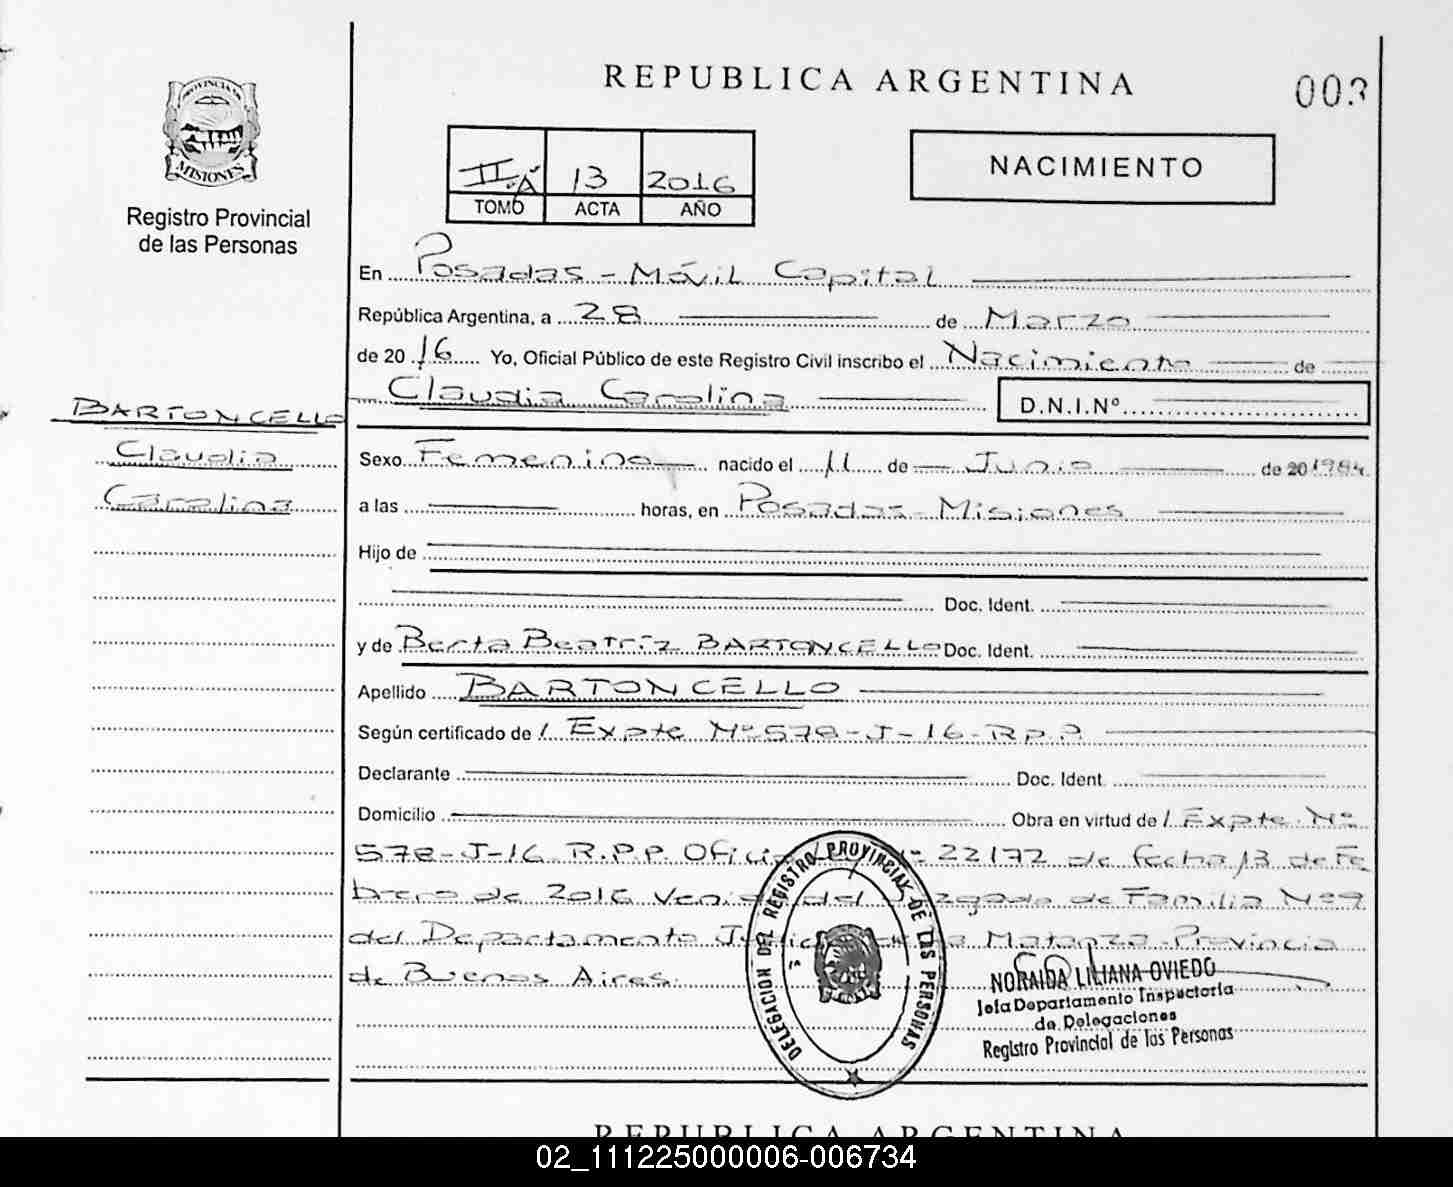 REPUBLICA ARGENTINA
003
PROVINCIA DE
MISIONES
Registro Provincial
de las Personas
II A 13 2016
TOMO ACTA AÑO
NACIMIENTO
En Posadas - Móvil Capital
República Argentina, a 28 de Marzo
de 2016 Yo, Oficial Público de este Registro Civil inscribo el Nacimiento de
Claudia Carolina D.N.I.Nº
BARTONCELLO
Claudia
Carolina
Sexo Femenino nacido el 11 de Junio de 20 1984
a las horas, en Posadas - Misiones
Hijo de
Doc. Ident.
y de Berta Beatríz BARTONCELLO Doc. Ident.
Apellido BARTONCELLO
Según certificado de / Expte Nº 578-J-16-R.P.P.
Declarante Doc. Ident.
Domicilio Obra en virtud de / Expte. Nº
578-J-16 R.P.P. Oficio 22172 de fecha 13 de Fe
brero de 2016 Venido del Juzgado de Familia Nº9
del Departamento Judicial Matanza-Provincia
de Buenos Aires.
DELEGACION DEL REGISTRO PROVINCIAL DE LAS PERSONAS
NORAIDA LILIANA OVIEDO
Jefa Departamento Inspectoría
de Delegaciones
Registro Provincial de las Personas
REPUBLICA ARGENTINA
02_111225000006-006734